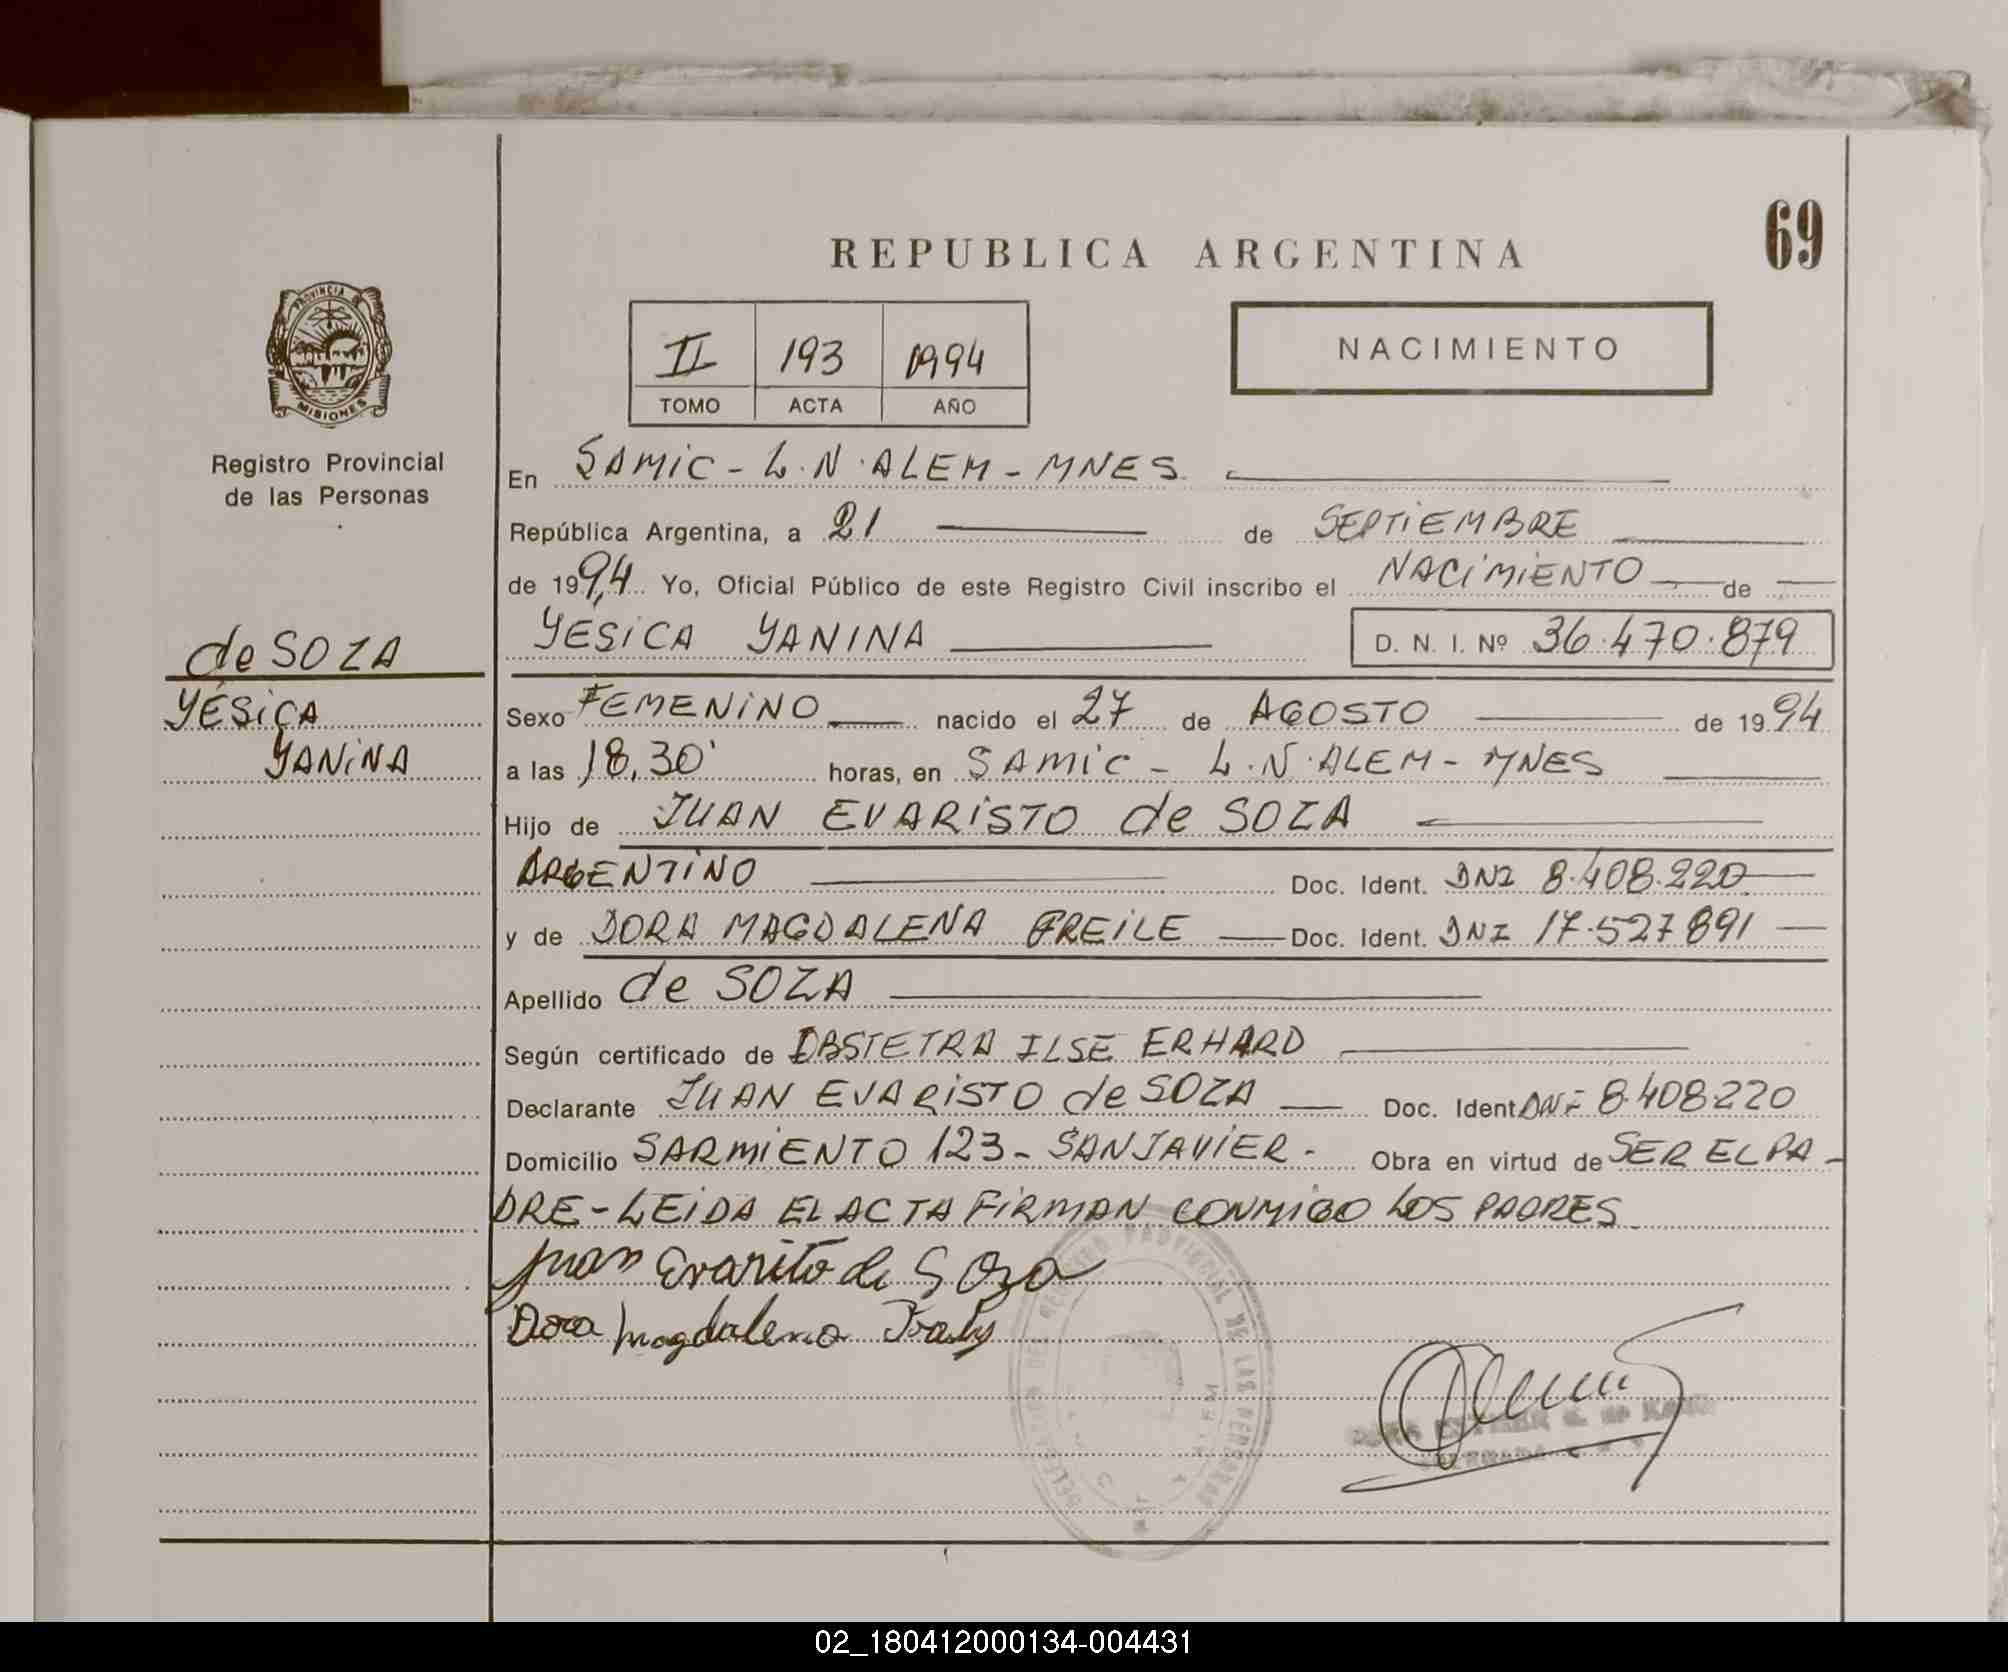 69
REPUBLICA ARGENTINA
PROVINCIA DE
MISIONES
II 193 1994
TOMO ACTA AÑO
NACIMIENTO
Registro Provincial
de las Personas
En SAMIC - L.N. ALEM - MNES
República Argentina, a 21 de SEPTIEMBRE
de 1994 Yo, Oficial Público de este Registro Civil inscribo el NACIMIENTO de
YESICA YANINA D. N. I. Nº 36.470.879
de SOZA
YÉSICA
YANINA
Sexo FEMENINO nacido el 27 de AGOSTO de 1994
a las 18,30' horas, en SAMIC - L.N. ALEM - MNES
Hijo de JUAN EVARISTO de SOZA
ARGENTINO Doc. Ident. DNI 8.408.220
y de DORA MAGDALENA FREILE Doc. Ident. DNI 17.527.891
Apellido de SOZA
Según certificado de OBSTETRA ILSE ERHARD
Declarante JUAN EVARISTO de SOZA Doc. Ident. DNI 8.408.220
Domicilio SARMIENTO 123 - SAN JAVIER - Obra en virtud de SER EL PA-
DRE - LEIDA EL ACTA FIRMAN CONMIGO LOS PADRES
Juan Evarito de Soza
Dora Magdalena
PROVINCIAL DE LAS PERSONAS
02_180412000134-004431